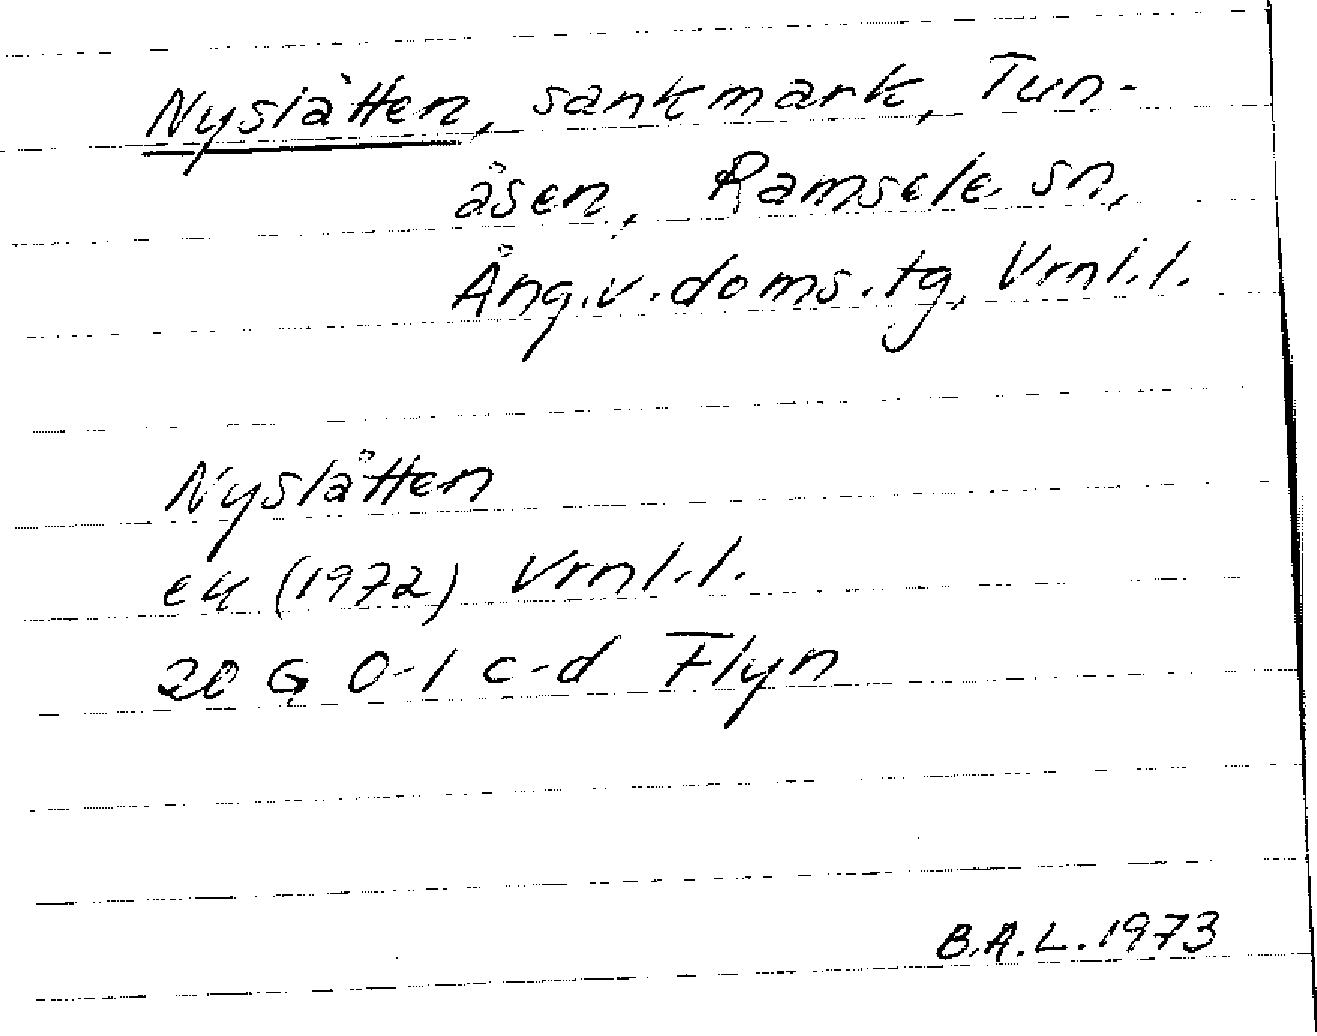 Nyslåtten, sankmark, Tun-
åsen, Ramsele sn,
Ång.v.doms.tg, Vrnl.l.
Nyslåtten
ek (1972) Vrnl.l.
20 G 0-1 c-d Flyn
B.A.L. 1973